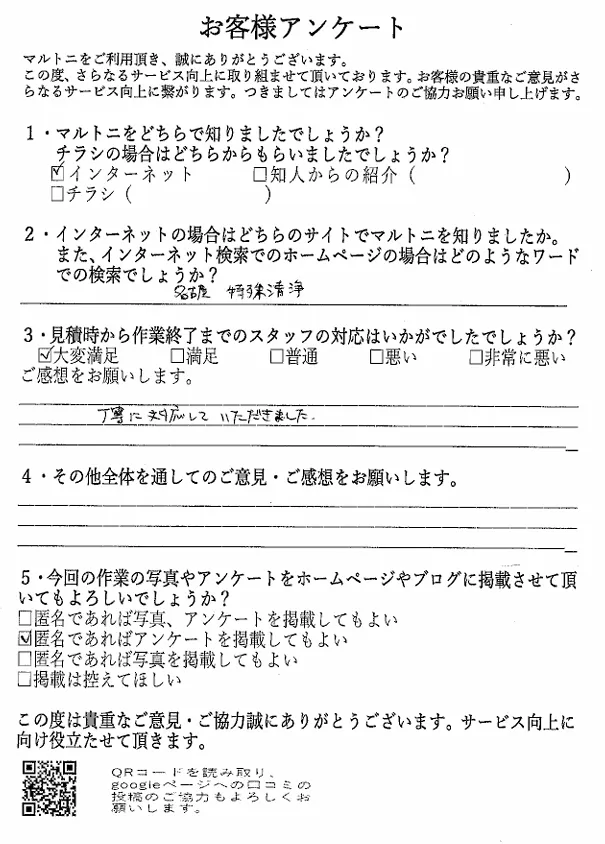 お客様アンケート
マルトニをご利用頂き、誠にありがとうございます。
この度、さらなるサービス向上に取り組ませて頂いております。お客様の貴重なご意見がさ
らなるサービス向上に繋がります。つきましてはアンケートのご協力お願い申し上げます。
1・マルトニをどちらで知りましたでしょうか？
チラシの場合はどちらからもらいましたでしょうか？
☑インターネット　□知人からの紹介（　　　）
□チラシ（　　　）
2・インターネットの場合はどちらのサイトでマルトニを知りましたか。
また、インターネット検索でのホームページの場合はどのようなワード
での検索でしょうか？
名古屋 特殊清浄
3・見積時から作業終了までのスタッフの対応はいかがでしたでしょうか？
☑大変満足　□満足　□普通　□悪い　□非常に悪い
ご感想をお願いします。
丁寧に対応して いただきました.
4・その他全体を通してのご意見・ご感想をお願いします。
5・今回の作業の写真やアンケートをホームページやブログに掲載させて頂
いてもよろしいでしょうか？
□匿名であれば写真、アンケートを掲載してもよい
☑匿名であればアンケートを掲載してもよい
□匿名であれば写真を掲載してもよい
□掲載は控えてほしい
この度は貴重なご意見・ご協力誠にありがとうございます。サービス向上に
向け役立たせて頂きます。
QRコードを読み取り、
googleページへの口コミの
投稿のご協力もよろしくお
願いします。